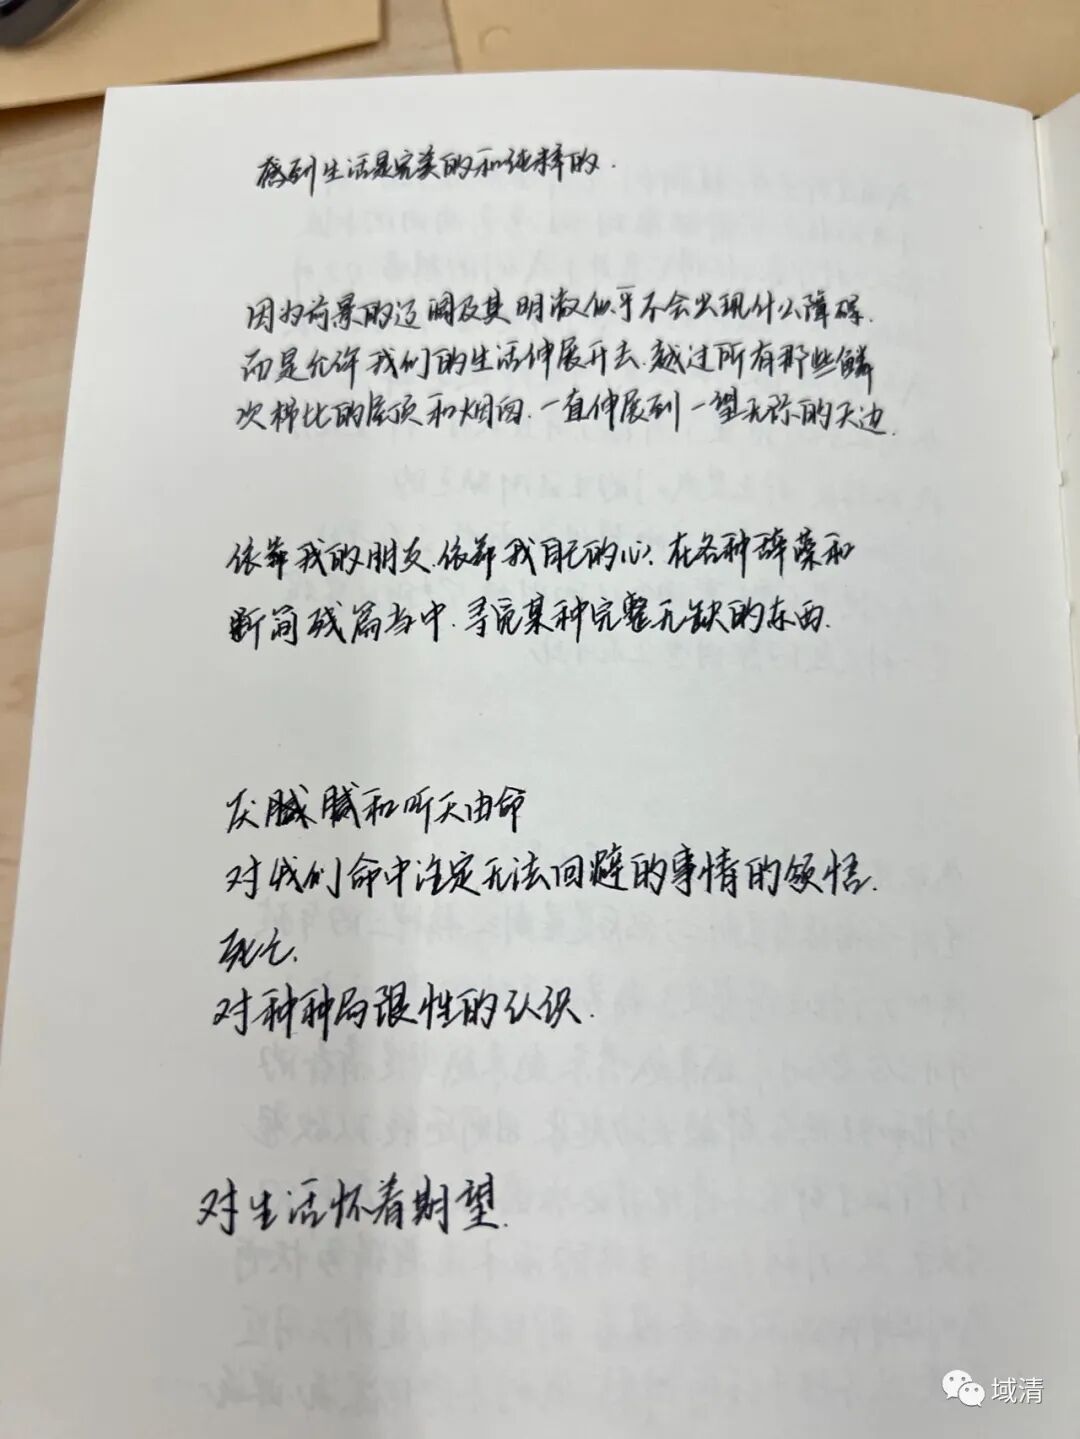 感到生活是完美的和纯粹的.
因为前景的迈阔及其明澈似乎不会出现什么障碍.
而是允许我们的生活伸展开去.越过所有那些鳞
次栉比的屋顶和烟囱.一直伸展到一望无际的天边.
依靠我的朋友.依靠我自己的心.在各种辞藻和
断简残篇当中.寻觅某种完整无缺的东西.
厌腻腻和听天由命
对我们命中注定无法回避的事情的领悟.
死亡.
对种种局限性的认识.
对生活怀着期望.
域清